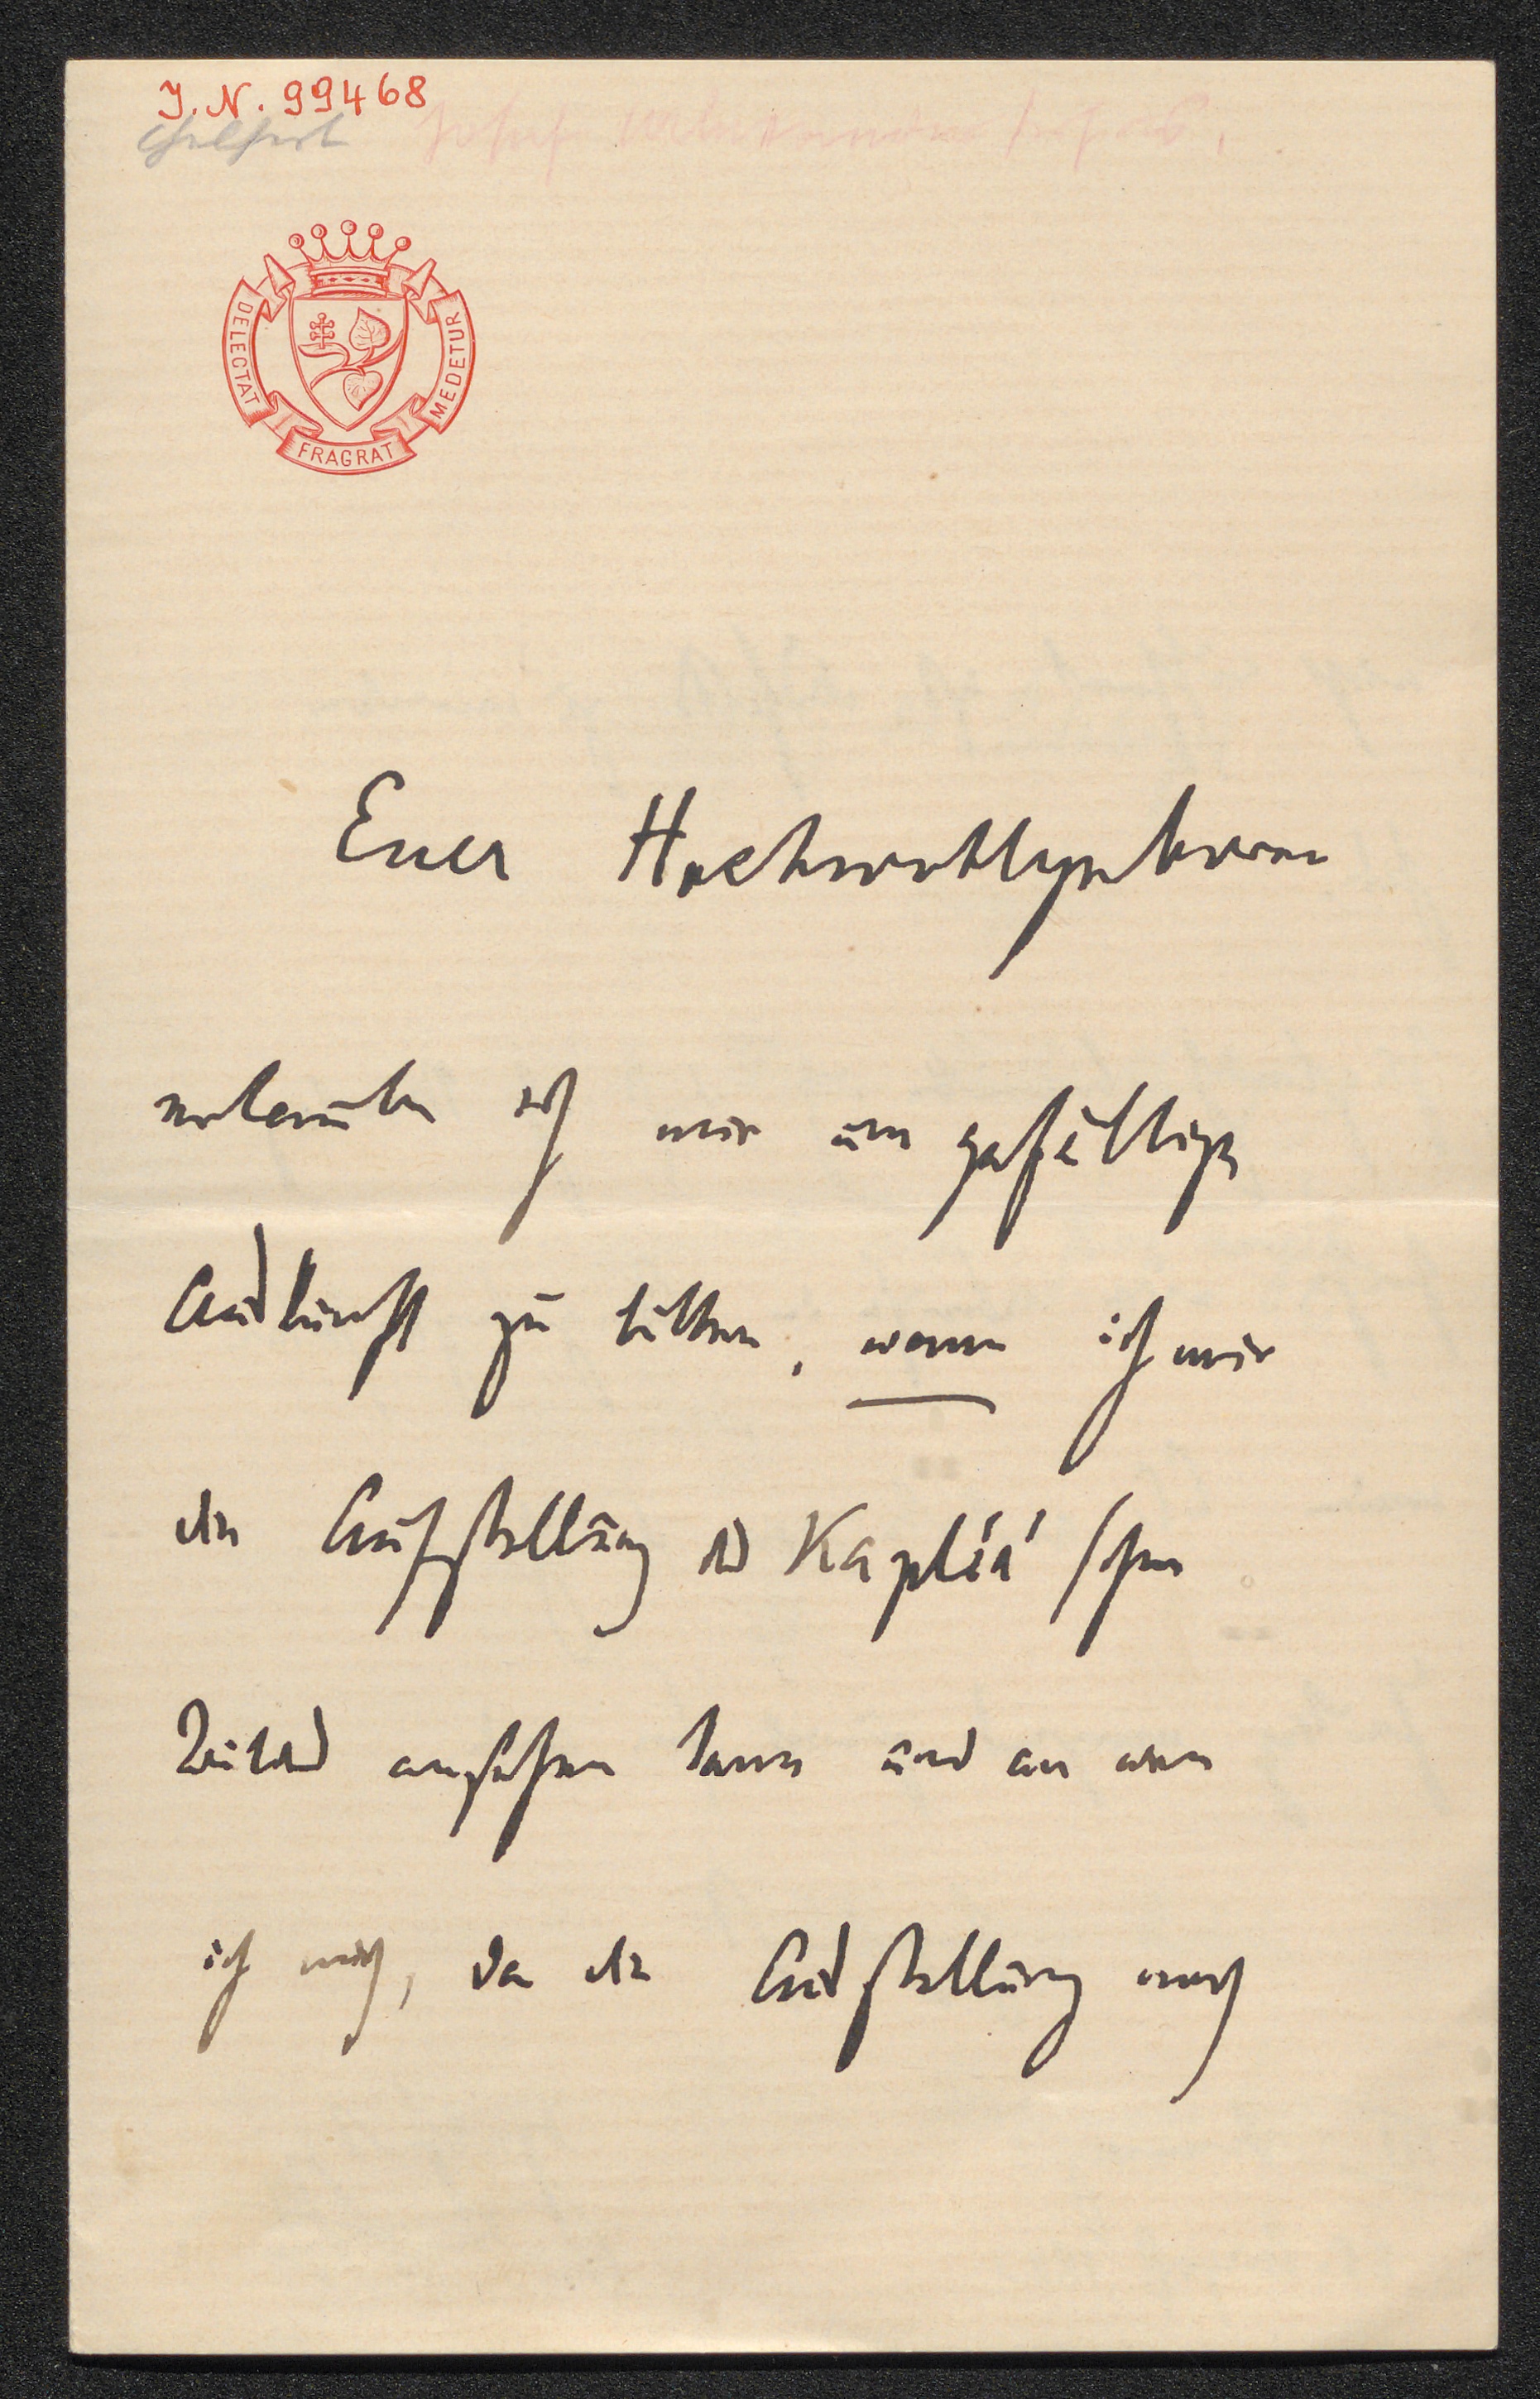 J. N. 99468
Helfert
DELECTAT
FRAGRAT
MEDETUR
Euer Hochwohlgeboren
erlaube ich mir um gefällige
Auskunft zu bitten, wann ich mir
die Aufstellung des Kaplíř'schen
ansehen kann und an wen
ich mich, da die Ausstellung noch